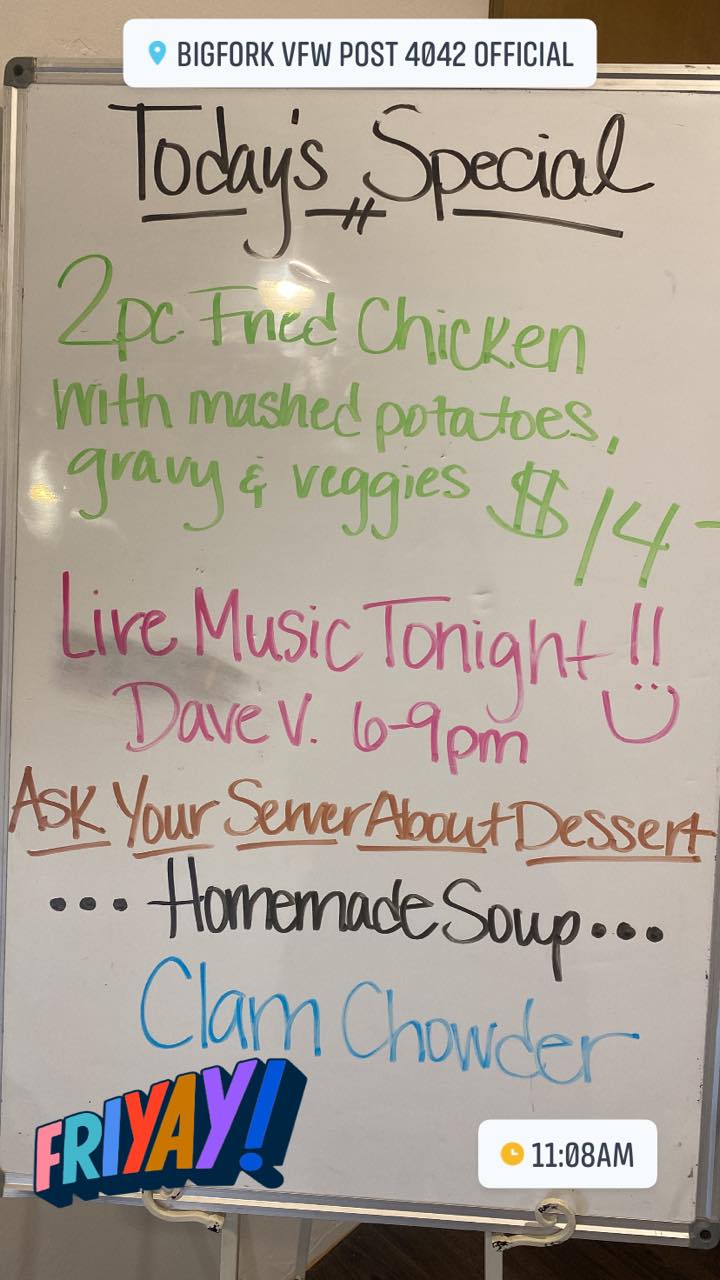 BIGFORK VFW POST 4042 OFFICIAL
Today's Special
2pc. Fried Chicken
with mashed potatoes,
gravy & veggies $14-
Live Music Tonight!!
Dave V. 6-9pm
Ask Your Server About Dessert
... Homemade Soup...
Clam Chowder
FRIYAY!
11:08AM